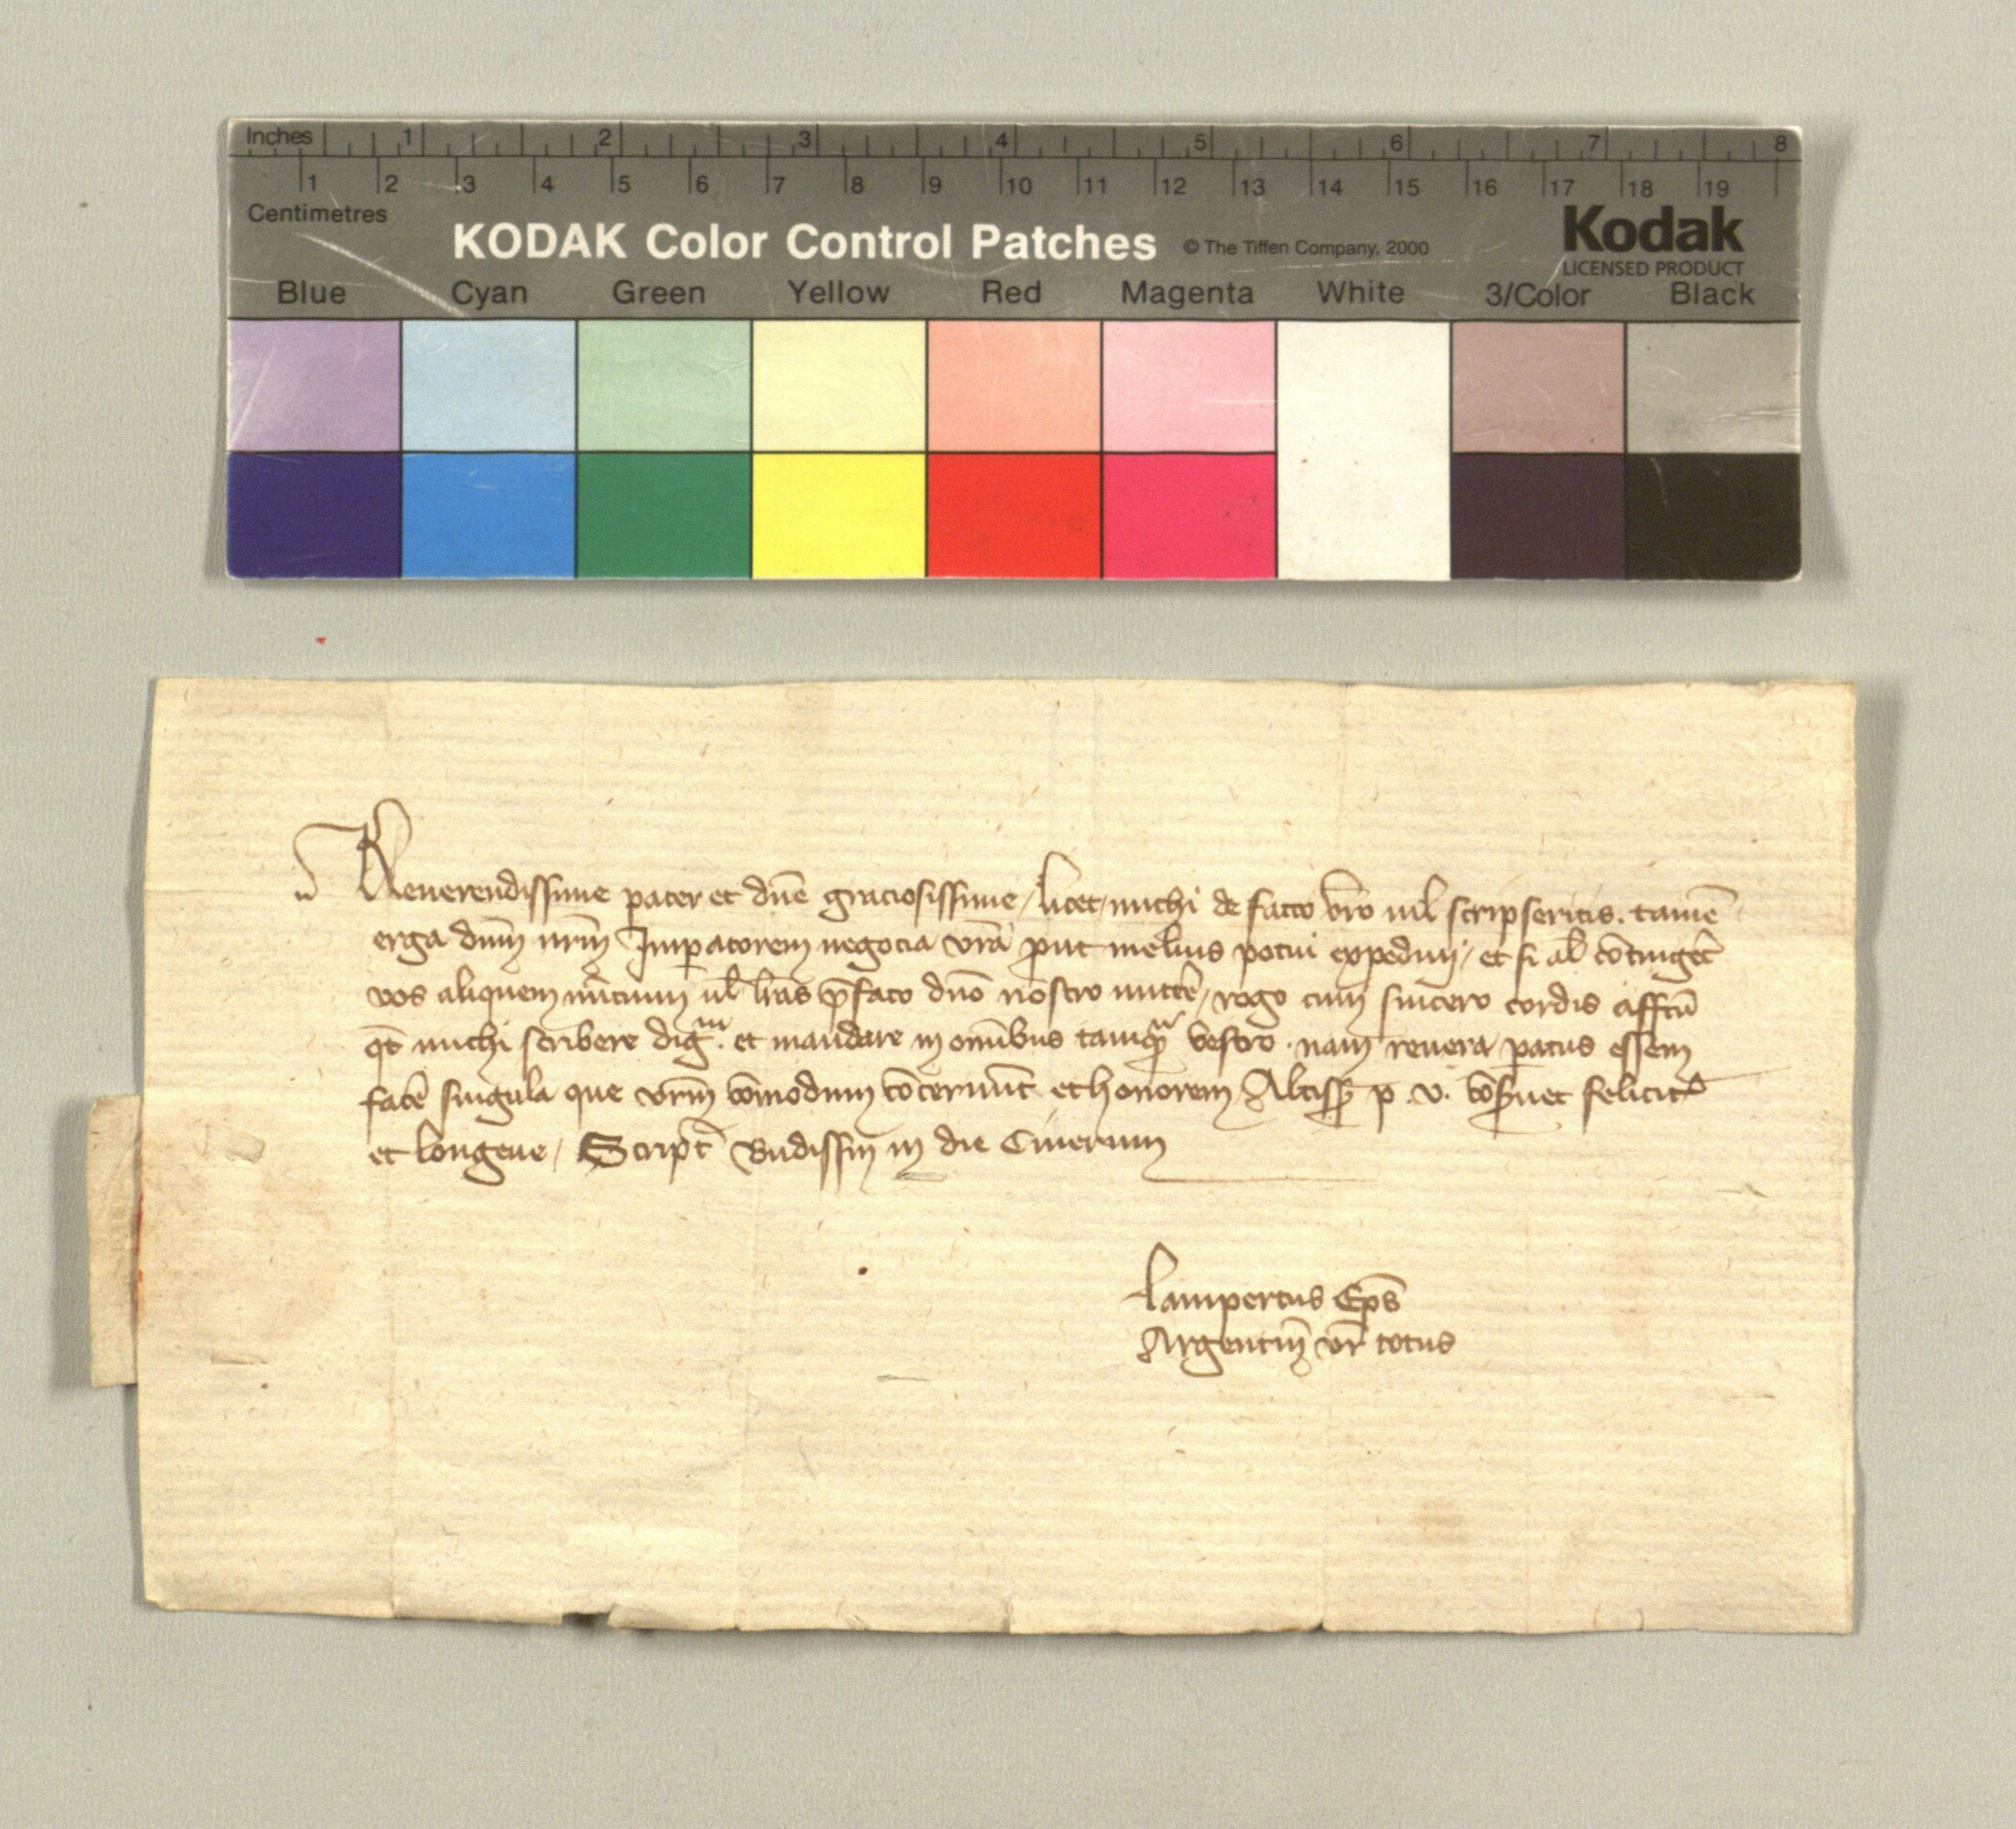 Inches 1 2 3 4 5 6 7 8
1 2 3 4 5 6 7 8 9 10 11 12 13 14 15 16 17 18 19
Centimetres
KODAK Color Control Patches © The Tiffen Company, 2000 Kodak
LICENSED PRODUCT
Blue Cyan Green Yellow Red Magenta White 3/Color Black
Reuerendissime pater et dn̄e graciosissime / licet / michi de facto vr̄o nil scripseritis . tamē
erga dn̄m nr̄m Imp̲atorem negocia vr̄a ꝓut melius potui expediui / et si al̄ cōtinget̄
vos aliquem nūcium ul̄ l̄ras p̄fato dn̄o nostro mitte᷑ / rogo cum sincero cordis affc̄u
qt̄ michi scribere dig. et mandare in om̄ibus tamq̄ᵃ vestro . nam reuera ꝑatus essem
face᷑ singula que vr̄m cōmodum cōcernūt et honorem Altiss̄ p . v . cōẜuet felicit᷑
et longeue / Script̄ Budissin in die Cinerum
Lampertus Ep̄s
Argentin̄ vr̄ totus